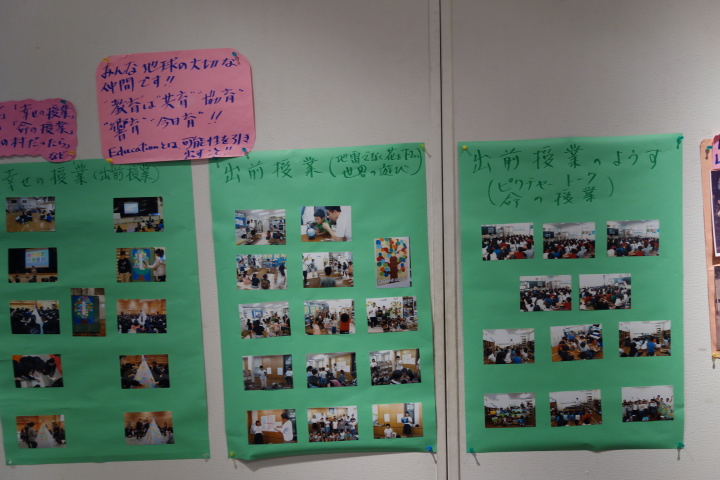 「幸せの授業」
「命の授業」
の村だったら」
など
みんな地球の大切な
仲間です!!
"教育"は"共育""協育"
"響育""今日育"!!
Educationとは可能性を引き
出すこと!!
幸せの授業(出前授業)
出前授業(地雷でなく花を下さい
世界の遊び)
出前授業のようす
(ピクチャートーク
命の授業)